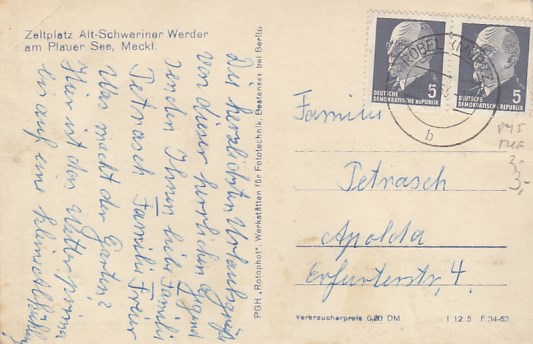 Zeltplatz Alt-Schweriner Werder
am Plauer See, Meckl.
Die herzlichsten Urlaubsgrüße
von dieser herrlichen Gegend
senden Ihnen liebe Familie
Petrasch Familie Freier
Was macht der Garten?
Hier ist das Wetter prima
bis auf eine kleine
PGH „Rotophot“, Werkstätten für Fototechnik, Bestensee bei Berlin
RÖBEL (MÜRITZ)
b
DEUTSCHE
DEMOKRATISCHE REPUBLIK
5
DEUTSCHE
DEMOKRATISCHE REPUBLIK
5
Familie
Petrasch
Apolda
Erfurterstr. 4.
3,-
Verbraucherpreis 0,20 DM
I 12 5 F 34-63